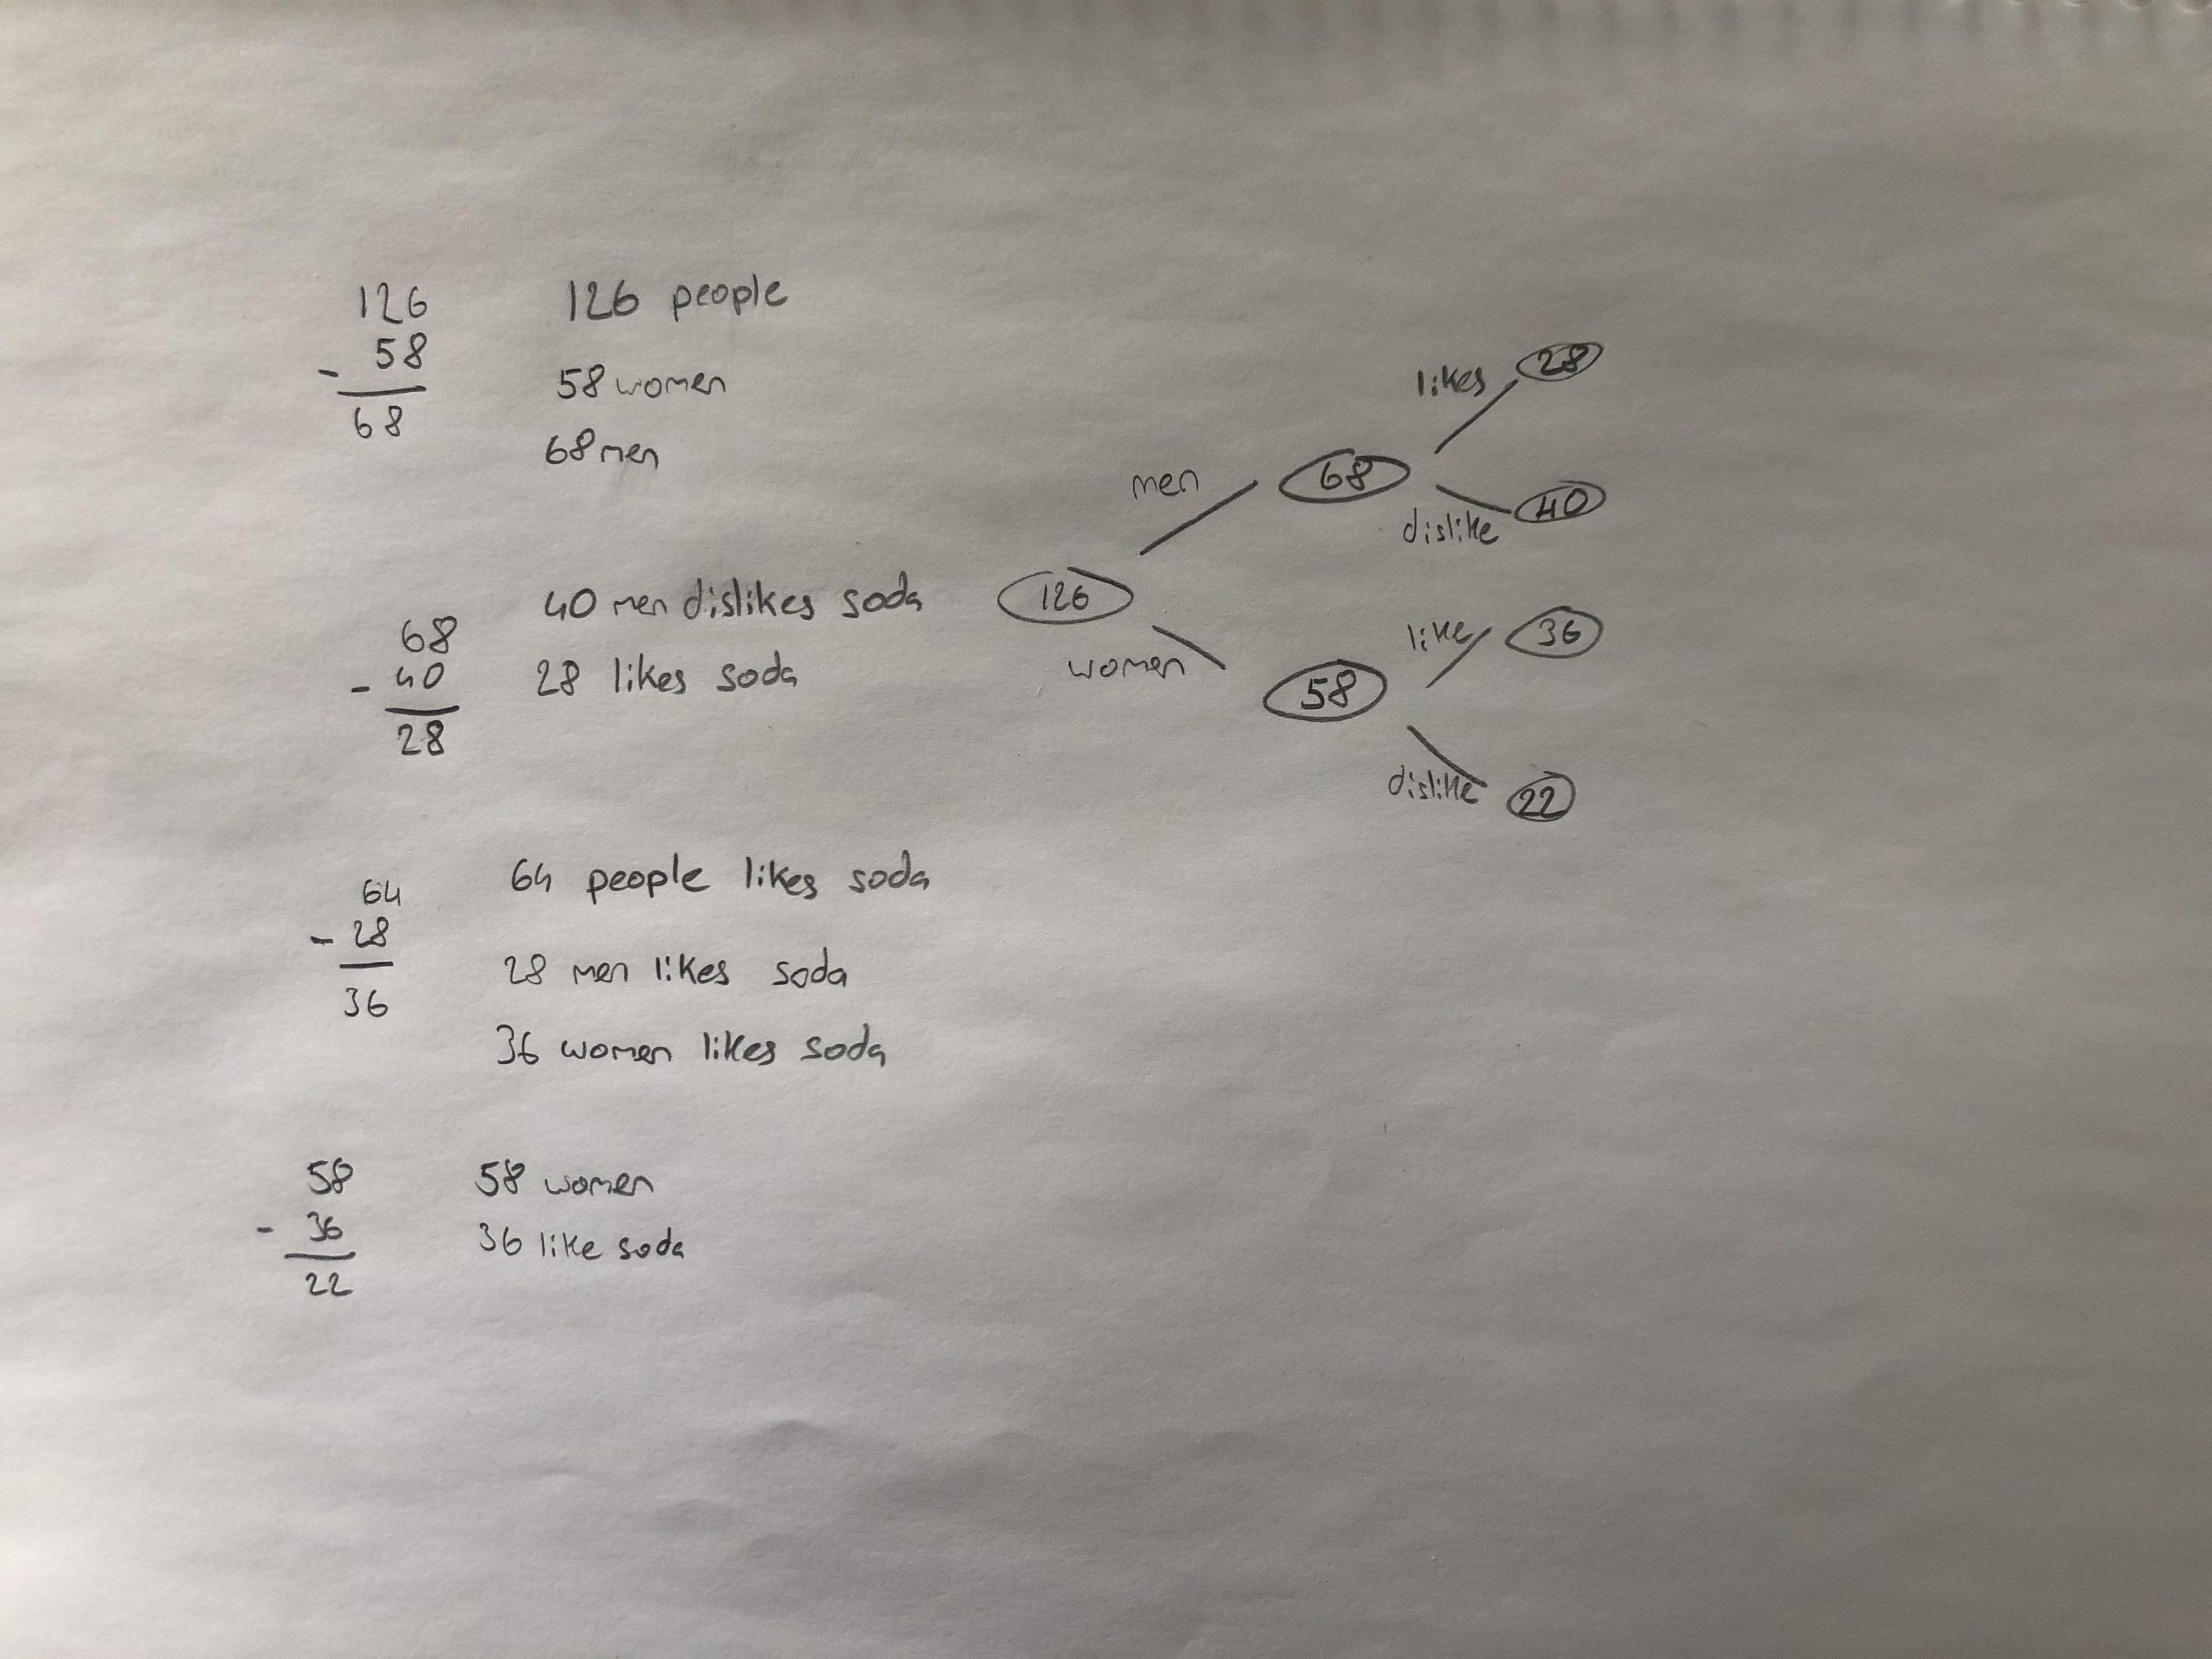 126
- 58
68
126 people
58 women
68 men
68
- 40
28
40 men dislikes soda
28 likes soda
64
- 28
36
64 people likes soda
28 men likes soda
36 women likes soda
58
- 36
22
58 women
36 like soda
126
men
68
likes
28
dislike
40
women
58
like
36
dislike
22